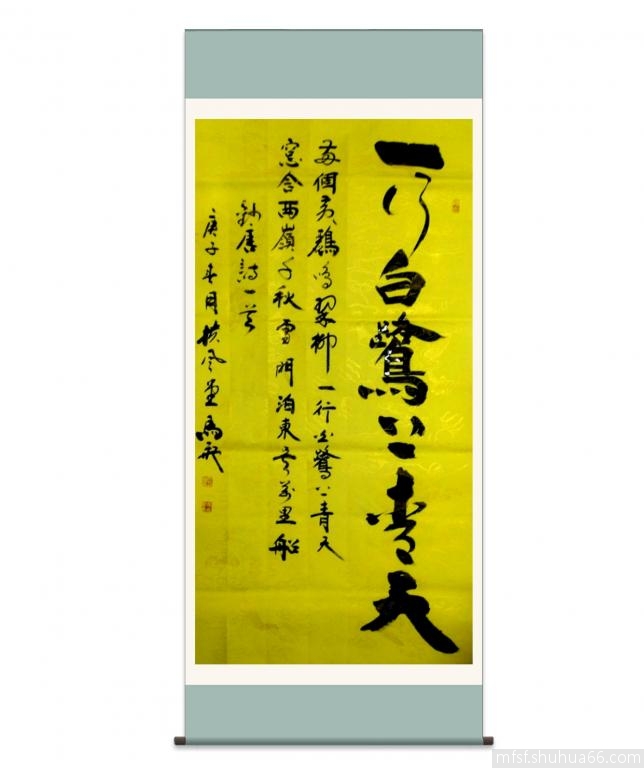 一行白鷺上青天
兩個黄鸝鸣翠柳一行白鷺上青天
窓含西嶺千秋雪門泊東吴萬里船
唐詩一首
庚子春月扶风堂馬
mfsf.shuhua66.com